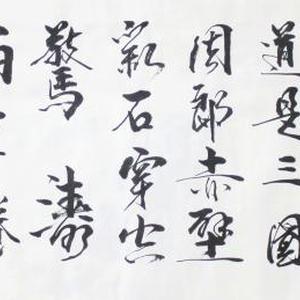 道是三國
周郎赤壁
亂石穿空
驚濤